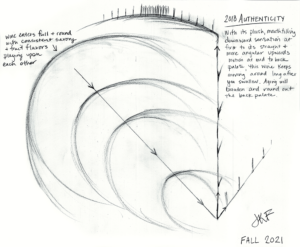 wine enters full + round
with concurrent savory
+ fruit flavors
playing upon
each other
2018 AUTHENTICITY
With its plush, mouthfilling
downward sensation at
first to its straight +
more angular upwards
motion at mid to back
palate, this wine keeps
moving around long after
you swallow. Aging will
broaden and round out
the back palate.
JKF
FALL 2021